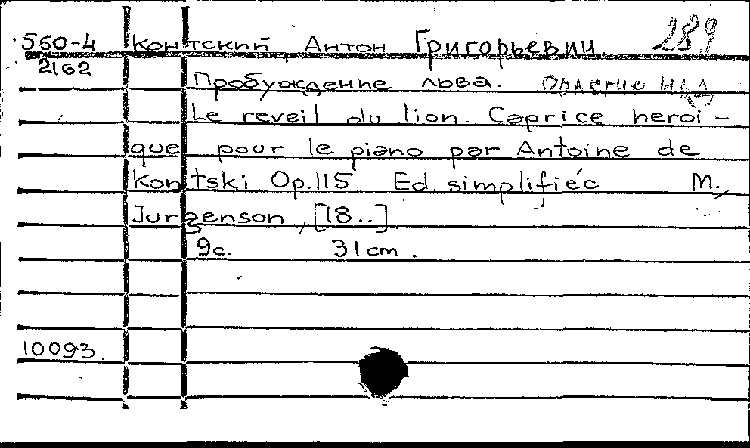 560-4 Контский, Антон Григорьевич. 289
2162
Пробуждение льва.
Le reveil du lion. Caprice heroi-
que pour le piano par Antoine de
Kontski Op.115 Ed simplifiée M.,
Jurgenson, [18..]
9с. 31cm.
10093.